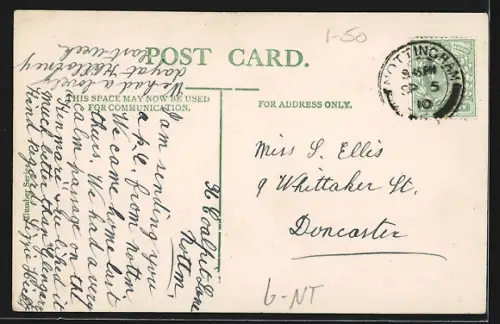 1-50
POST CARD.
THIS SPACE MAY NOW BE USED
FOR COMMUNICATION.
FOR ADDRESS ONLY.
NOTTINGHAM
5
10
Miss S. Ellis
9 Whittaker St.
Doncaster
6-NT
Coalpit Lane
Nottm.
I am sending you
a p.c. from Nottm
We came home last
Thurs. We had a very
calm passage on the
& he liked it
much better than
Kind regards. Lizzie
We had a lovely
day at
last week